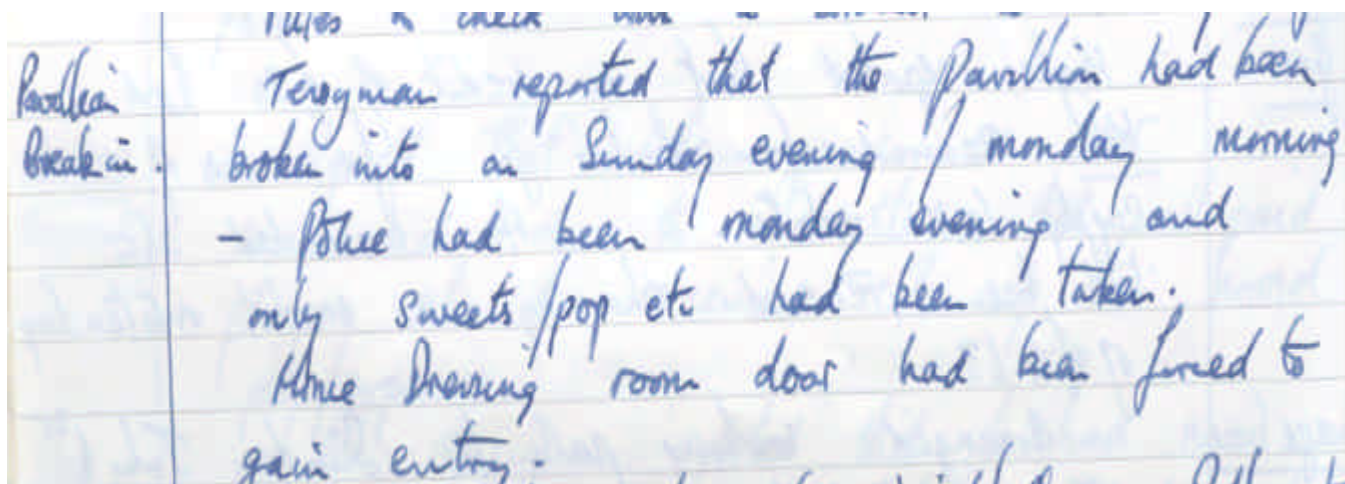 Pavillion Terryman reported that the Pavillion had been
Break in. broken into on Sunday evening / monday morning
- Police had been monday evening and
only sweets/pop etc had been taken.
Home Dressing room door had been forced to
gain entry.